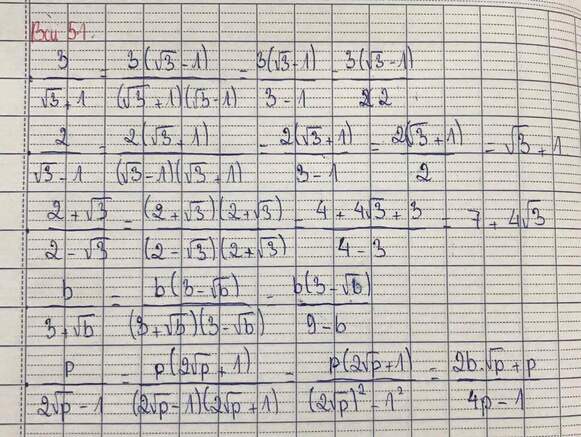 Bài 51.
3/(√3+1) = 3(√3-1)/((√3+1)(√3-1)) = 3(√3-1)/(3-1) = 3(√3-1)/2
2/(√3-1) = 2(√3+1)/((√3-1)(√3+1)) = 2(√3+1)/(3-1) = 2(√3+1)/2 = √3+1
(2+√3)/(2-√3) = (2+√3)(2+√3)/((2-√3)(2+√3)) = (4+4√3+3)/(4-3) = 7+4√3
b/(3+√b) = b(3-√b)/((3+√b)(3-√b)) = b(3-√b)/(9-b)
p/(2√p-1) = p(2√p+1)/((2√p-1)(2√p+1)) = p(2√p+1)/((2√p)²-1²) = (2b.√p+p)/(4p-1)